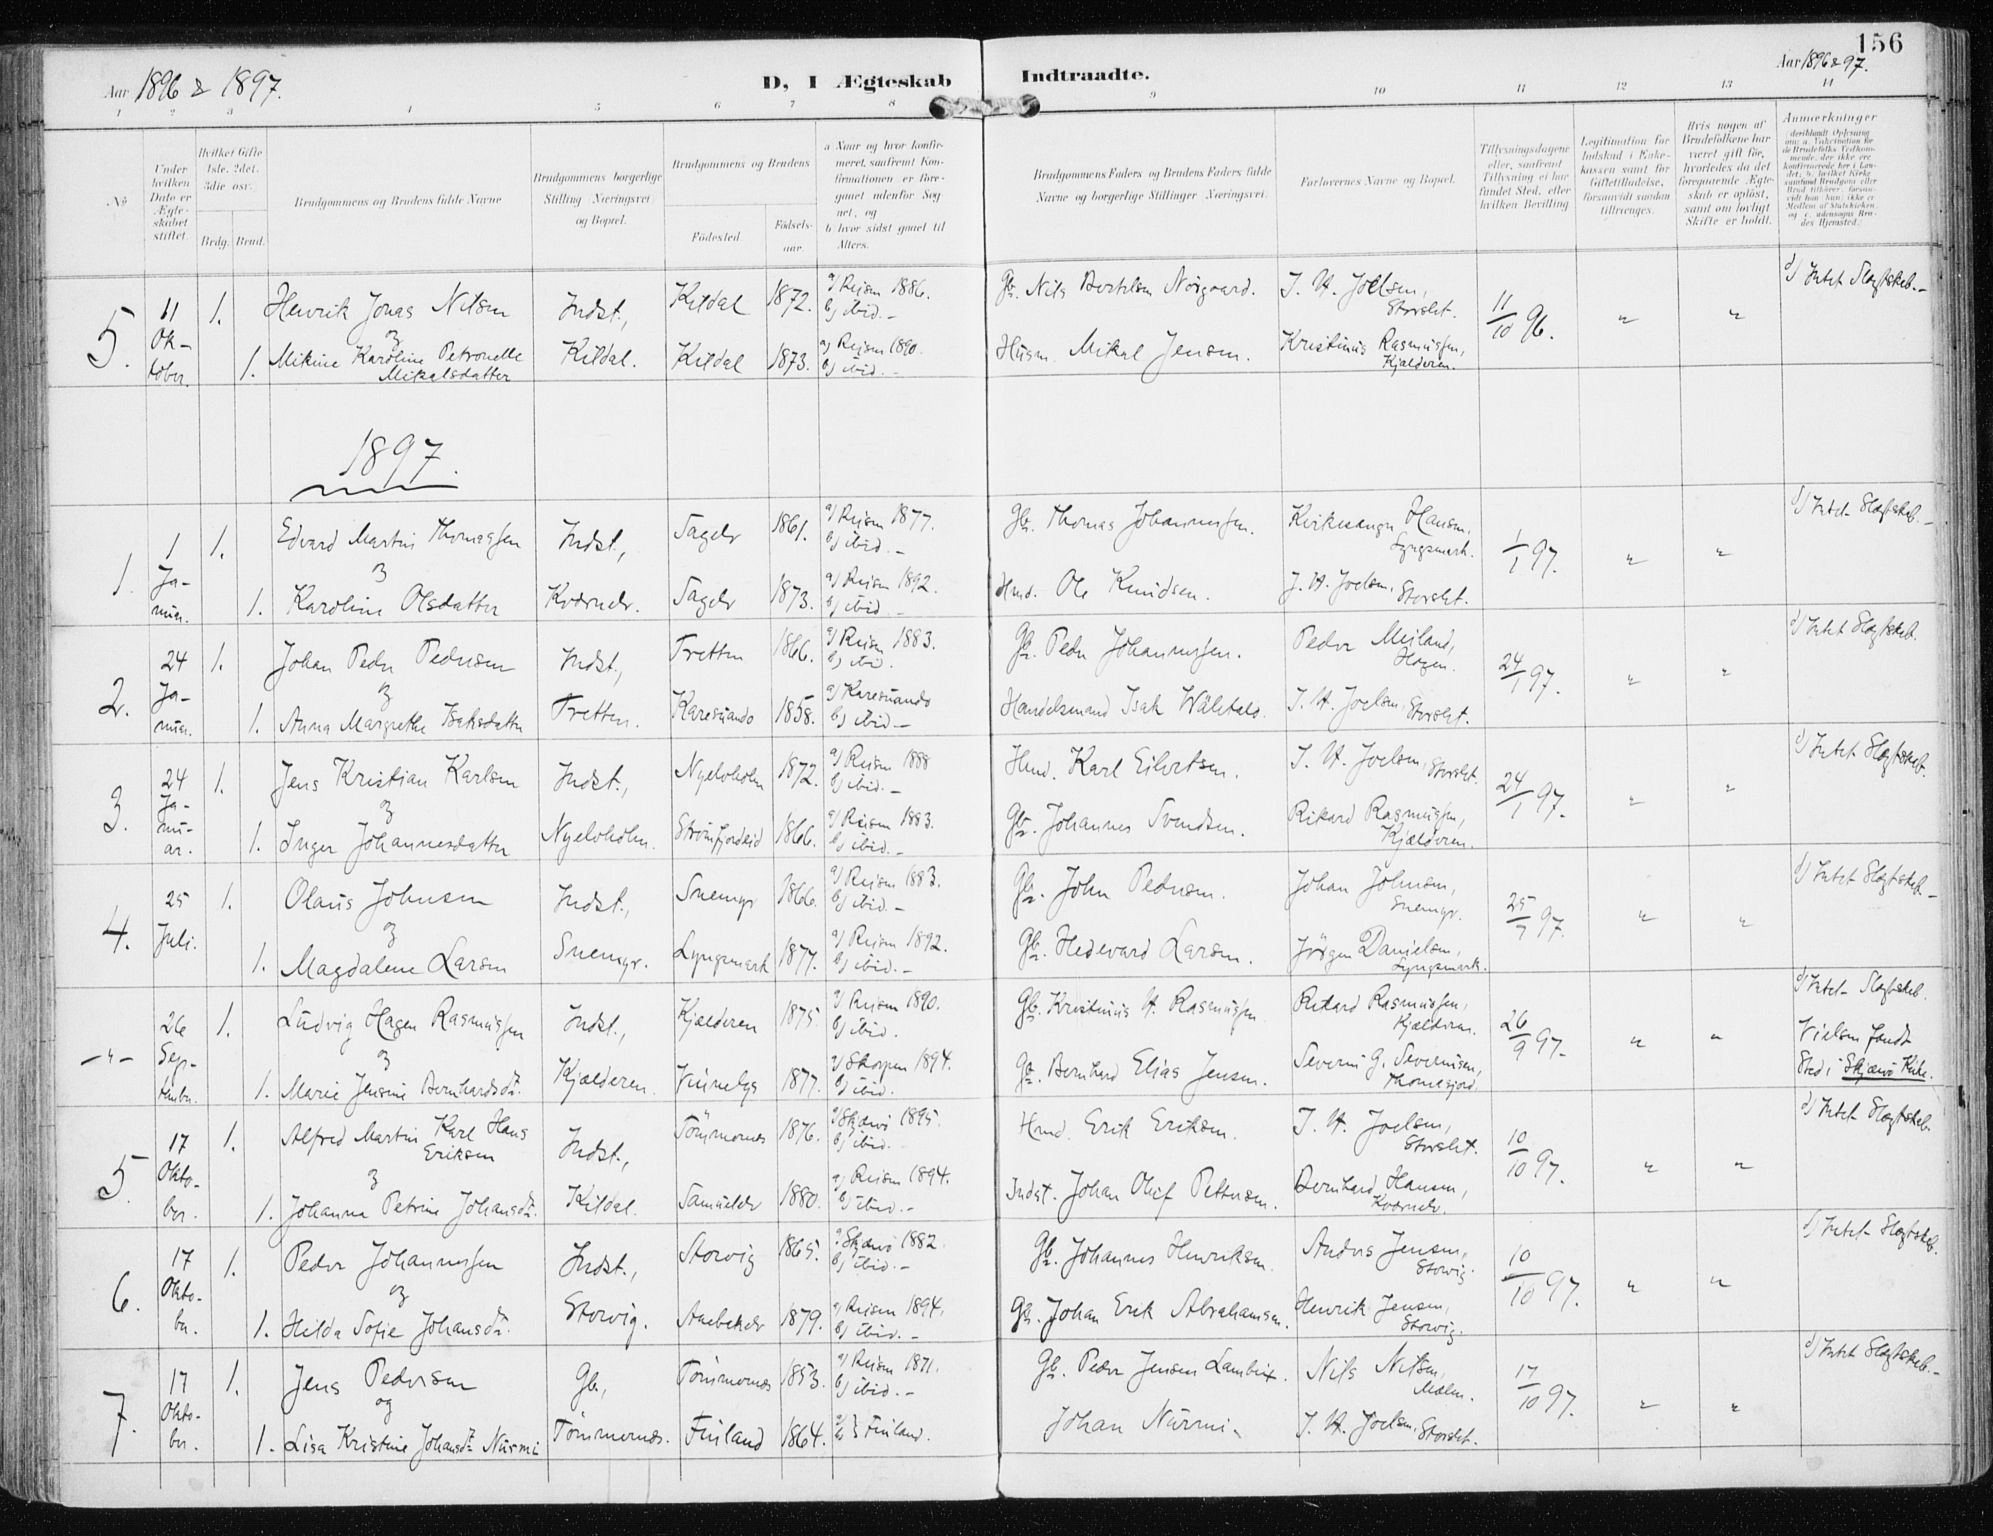 156
Aar 1896 & 1897.
D, I Ægteskab Indtraadte.
Aar 1896 & 97.
1 2 3 4 5 6 7 8 9 10 11 12 13 14
No
Under hvilken Dato er Ægteskabet stiftet.
Hvilket Gifte 1ste, 2det, 3die osv.
Brdg. Brud.
Brudgommens og Brudens fulde Navne
Brudgommens borgerlige Stilling Næringsvei og Bopæl.
Brudgommens og Brudens
Fødested. Fødselsaar.
a Naar og hvor konfirmeret, saafremt Konfirmationen er foregaaet udenfor Sognet, og
b hvor sidst gaaet til Alters.
Brudgommens Faders og Brudens Faders fulde Navne og borgerlige Stillinger Næringsvei.
Forlovernes Navne og Bopæl.
Tillysningsdagene eller, saafremt Tillysning ei har fundet Sted, efter hvilken Bevilling
Legitimation for Indskud i Enkekassen samt for Giftetilladelse, forsaavidt saadan tiltrænges.
Hvis nogen af Brudefolkene har været gift før, hvorledes da det foregaaende Ægteskab er opløst, samt om lovligt Skifte er holdt.
Anmærkninger
5. 11 Oktober. 1. Henrik Jonas Nilsen Indst., Kildal 1872. a) Reisen 1886. b) ibid.— Gb. Nils Bertelsen Norgaard. J. H. Joelsen, Storslet. 11/10 96. " " d) Intet Slægtskab.—
og
1. Mikine Karoline Petronelle Mikalsdatter Kildal. Kildal 1873. a) Reisen 1890. b) ibid.— Husm. Mikal Jensen. Kristinus Rasmussen, Kjælderen.
1897.
1. 1 Januar. 1. Edvard Martin Thomassen Indst., Sagelv 1861. a) Reisen 1877. b) ibid.— Gbr. Thomas Johannessen. Kirkesanger Hansen, Lyngsmark. 1/1 97. " " d) Intet Slægtskab.—
og
1. Karoline Olsdatter Kvænelv. Sagelv 1873. a) Reisen 1892. b) ibid.— Hmd. Ole Knudsen. J. H. Joelsen, Storslet.
2. 24 Januar. 1. Johan Peder Pedersen Indst., Tretten 1866. a) Reisen 1883. b) ibid. Gb. Peder Johannessen. Peder Meiland, Hagen. 24/1 97. " " d) Intet Slægtskab.
og
1. Anna Margrethe Isaksdatter Tretten. Karesuando 1858. a) Karesuando b) ibid.— Handelsmand Isak J. H. Joelsen, Storslet.
3. 24 Januar. 1. Jens Kristian Karlsen Indst., Nyelvholm 1872. a) Reisen 1888 b) ibid.— Hmd. Karl Eilertsen. J. H. Joelsen, Storslet. 24/1 97. " " d) Intet Slægtskab.
og
1. Inger Johannesdatter Nyelvholm. Straumfjordeid 1866. a) Reisen 1883. b) ibid.— Gbr. Johannes Svendsen. Rikard Rasmussen, Kjælderen.
4. 25 Juli. 1. Olaus Johnsen Indst., Snemyr 1866. a) Reisen 1883. b) ibid.— Gb. John Pedersen. Johan Johnsen, Snemyr. 25/7 97. " " d) Intet Slægtskab.—
og
1. Magdalene Larsen Snemyr. Lyngsmark 1877. a) Reisen 1892. b) ibid.— Gb. Hedevard Larsen. Jörgen Danielsen, Lyngsmark.
—"— 26 September. 1. Ludvig Hagen Rasmussen Indst., Kjælderen 1875. a) Reisen 1890. b) ibid. Gb. Kristinus H. Rasmussen Rikard Rasmussen, Kjælderen. 26/9 97. " " d) Intet Slægtskab. Vielsen fandt Sted i Skjærvö Kirke.
og
1. Marie Jensine Bernhardsdtr. Kjælderen. Vinnelys 1877. a) Skorpen 1894. b) ibid. Gb. Bernhard Elias Jensen. Severin G. Severinsen,
5. 17 Oktober. 1. Alfred Martin Karl Hans Eriksen Indst., Tömmernes 1876. a) Skjærvö 1895. b) ibid.— Hmd. Erik Eriksen. J. H. Joelsen, Storslet. 10/10 97. " " d) Intet Slægtskab.
og
1. Johanna Petrine Johansdtr. Kildal. Samuelelv 1880. a) Reisen 1894. b) ibid.— Indst. Johan Olaf Pettersen. Bernhard Hansen, Kvænelv.
6. 17 Oktober. 1. Peder Johannessen Indst., Storvig 1865. a) Skjærvö 1882. b) ibid.— Gb. Johannes Henriksen. Anders Jensen, Storvig. 10/10 97. " " d) Intet Slægtskab.
og
1. Hilda Sofie Johansdtr. Storvig. 1879. a) Reisen 1894. b) ibid.— Gb. Johan Erik Abrahamsen. Henrik Jensen, Storvig.
7. 17 Oktober. 1. Jens Pedersen Gb., Tömmernes 1853. a) Reisen 1871. b) ibid.— Gb. Peder Jensen Nils Nilsen, Malm. 17/10 97. " " d) Intet Slægtskab.—
og
1. Lisa Kristine Johansdtr Nurmi Tömmernes. Finland 1864. a) b) } Finland. Johan Nurmi. J. H. Joelsen, Storslet.